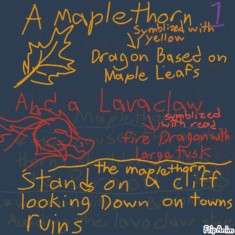 A Maplethorn 1
Symblized with
yellow
Dragon Based on
Maple Leafs
And a Lavaclaw
symblized
with read
fire Dragon with
large tusk
the maplethorn
Stands on a cliff
looking Down on towns
ruins
FlipAnim